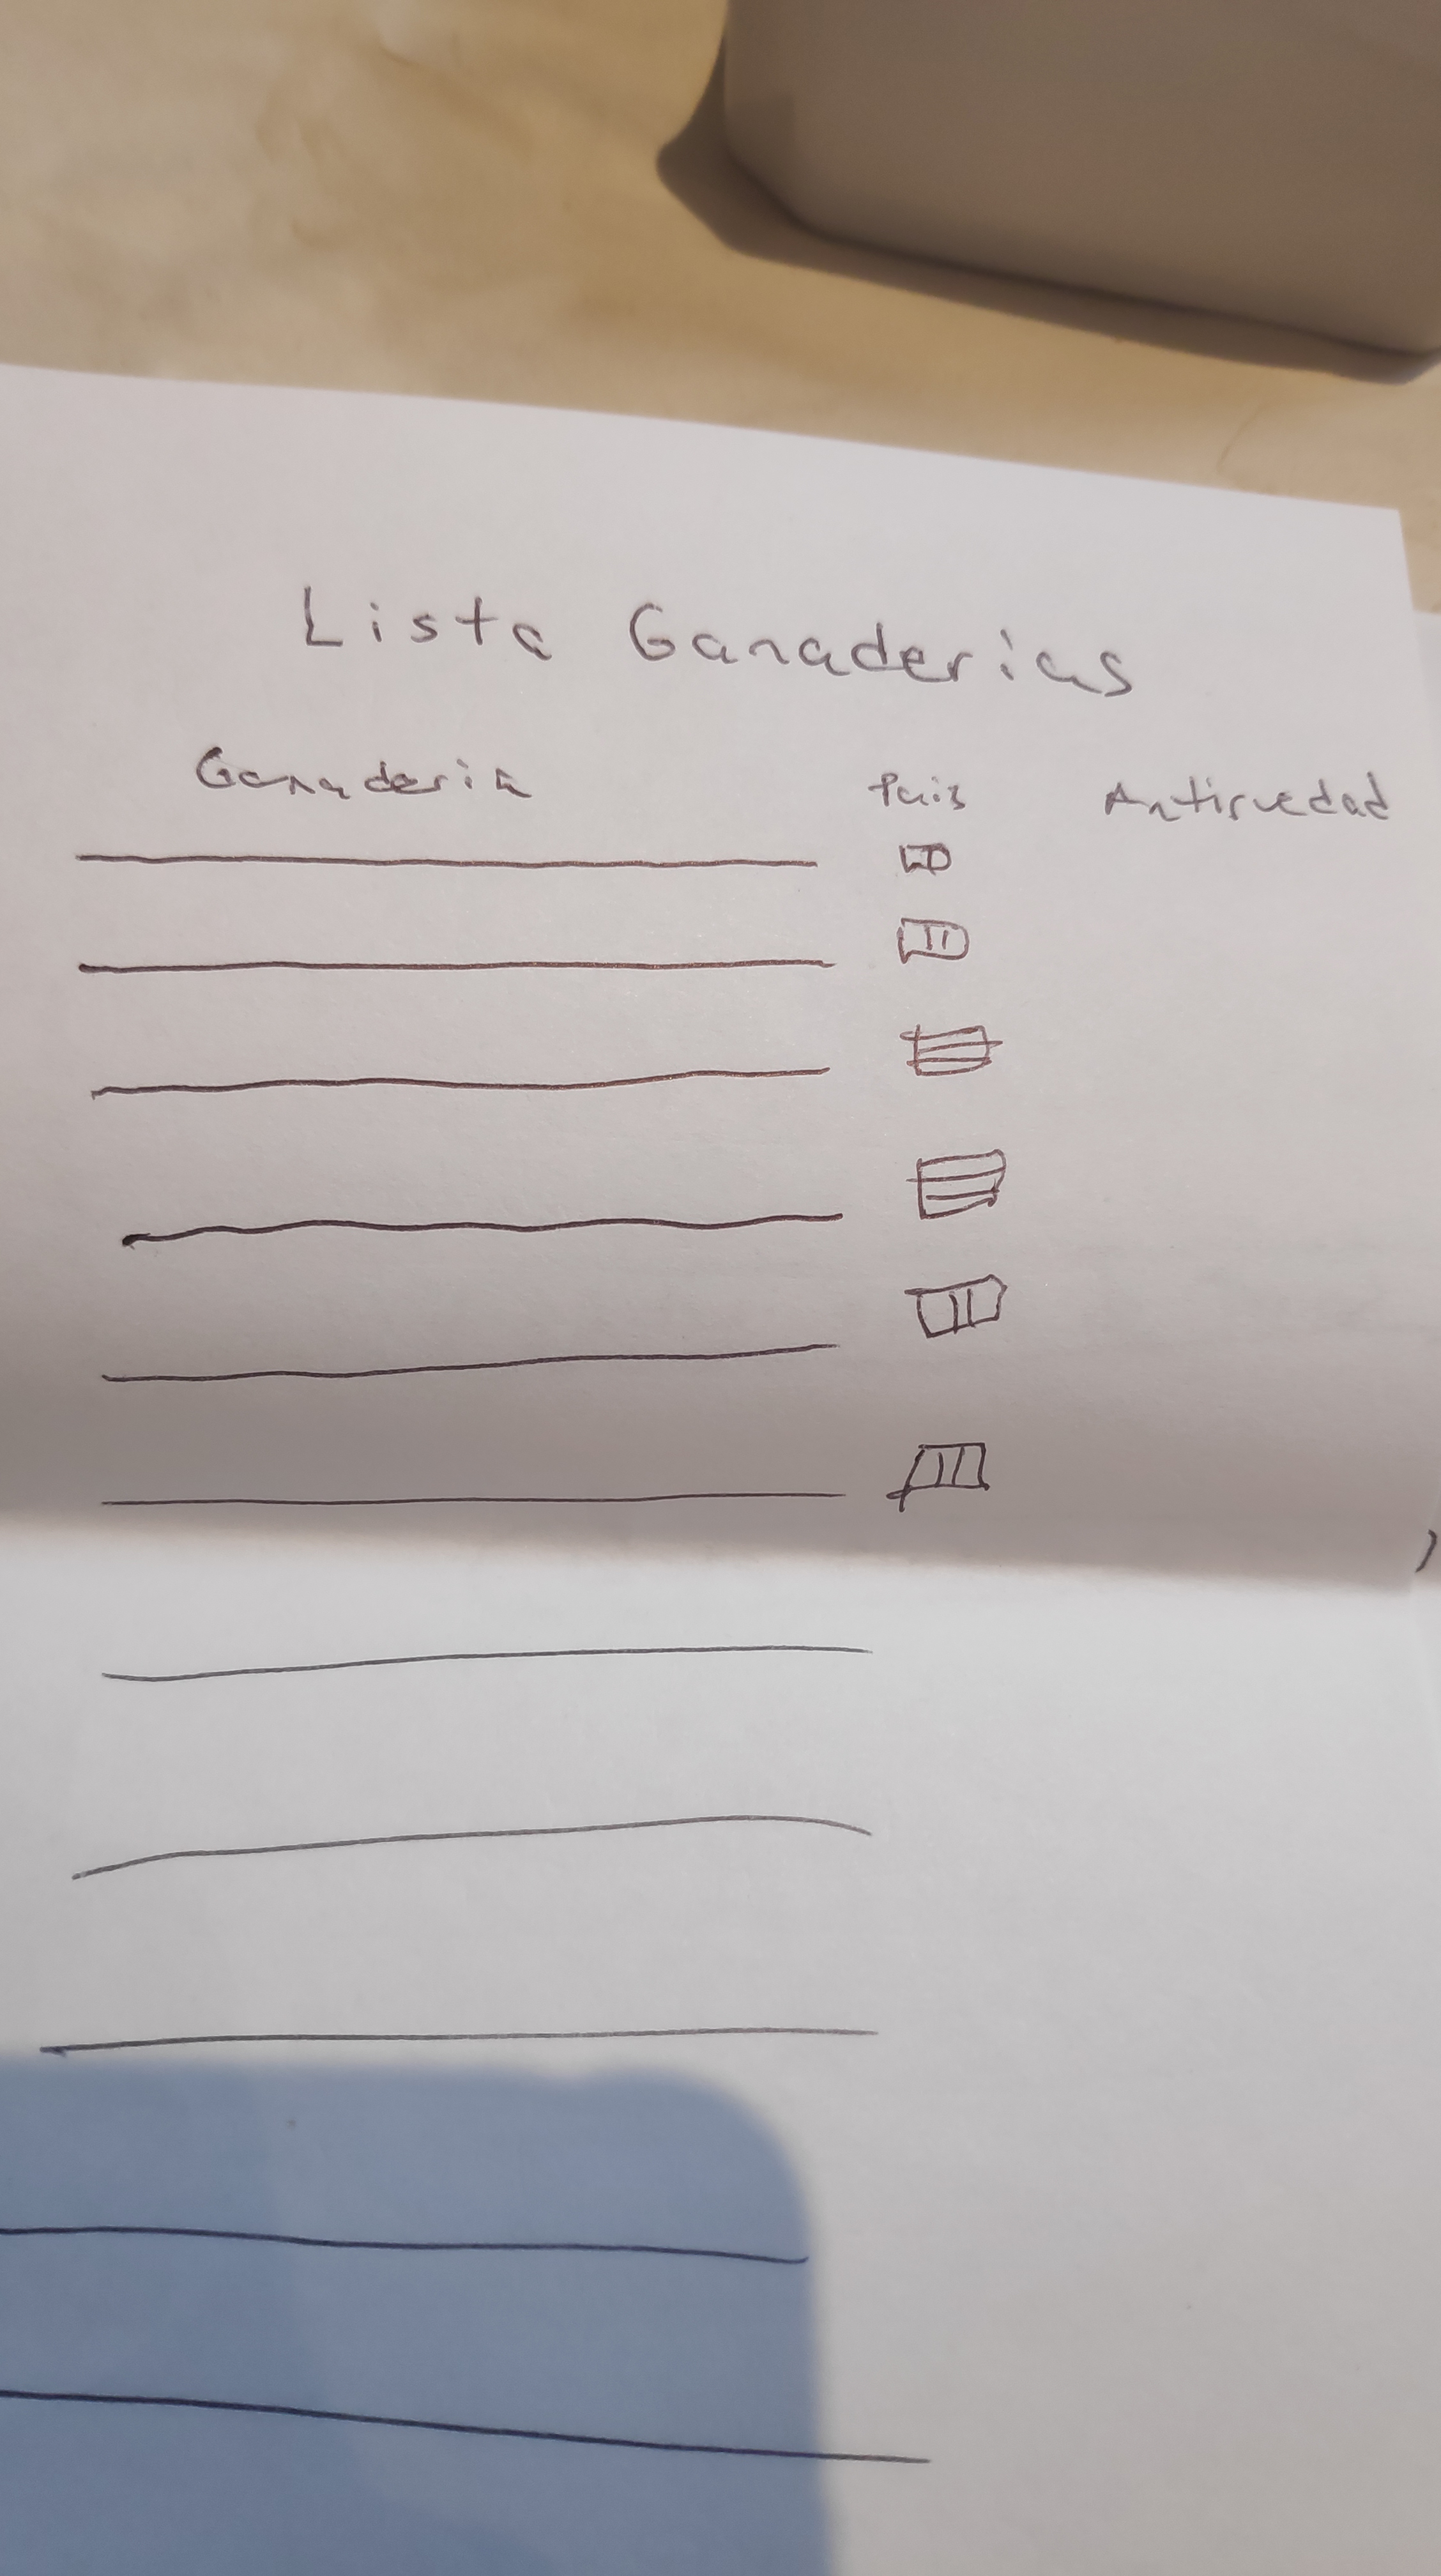 Lista Ganaderias
Ganaderia Pais Antiguedad